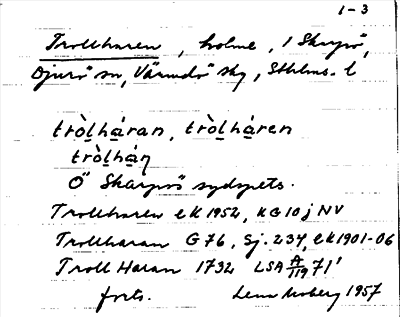 1-3
Trollharen, holme, i Skarpö,
Djurö sn, Värmdö sky, Sthlms. l
tròlháran, tròlháren
tròlhán
Ö Skarpö sydspets.
Trollharen EK 1952, KG 10 j NV
Trollharan G 76, Sj. 234, EK 1901-06
Troll Haran 1732 LSA A/119 71'
forts. Lena Moberg 1957